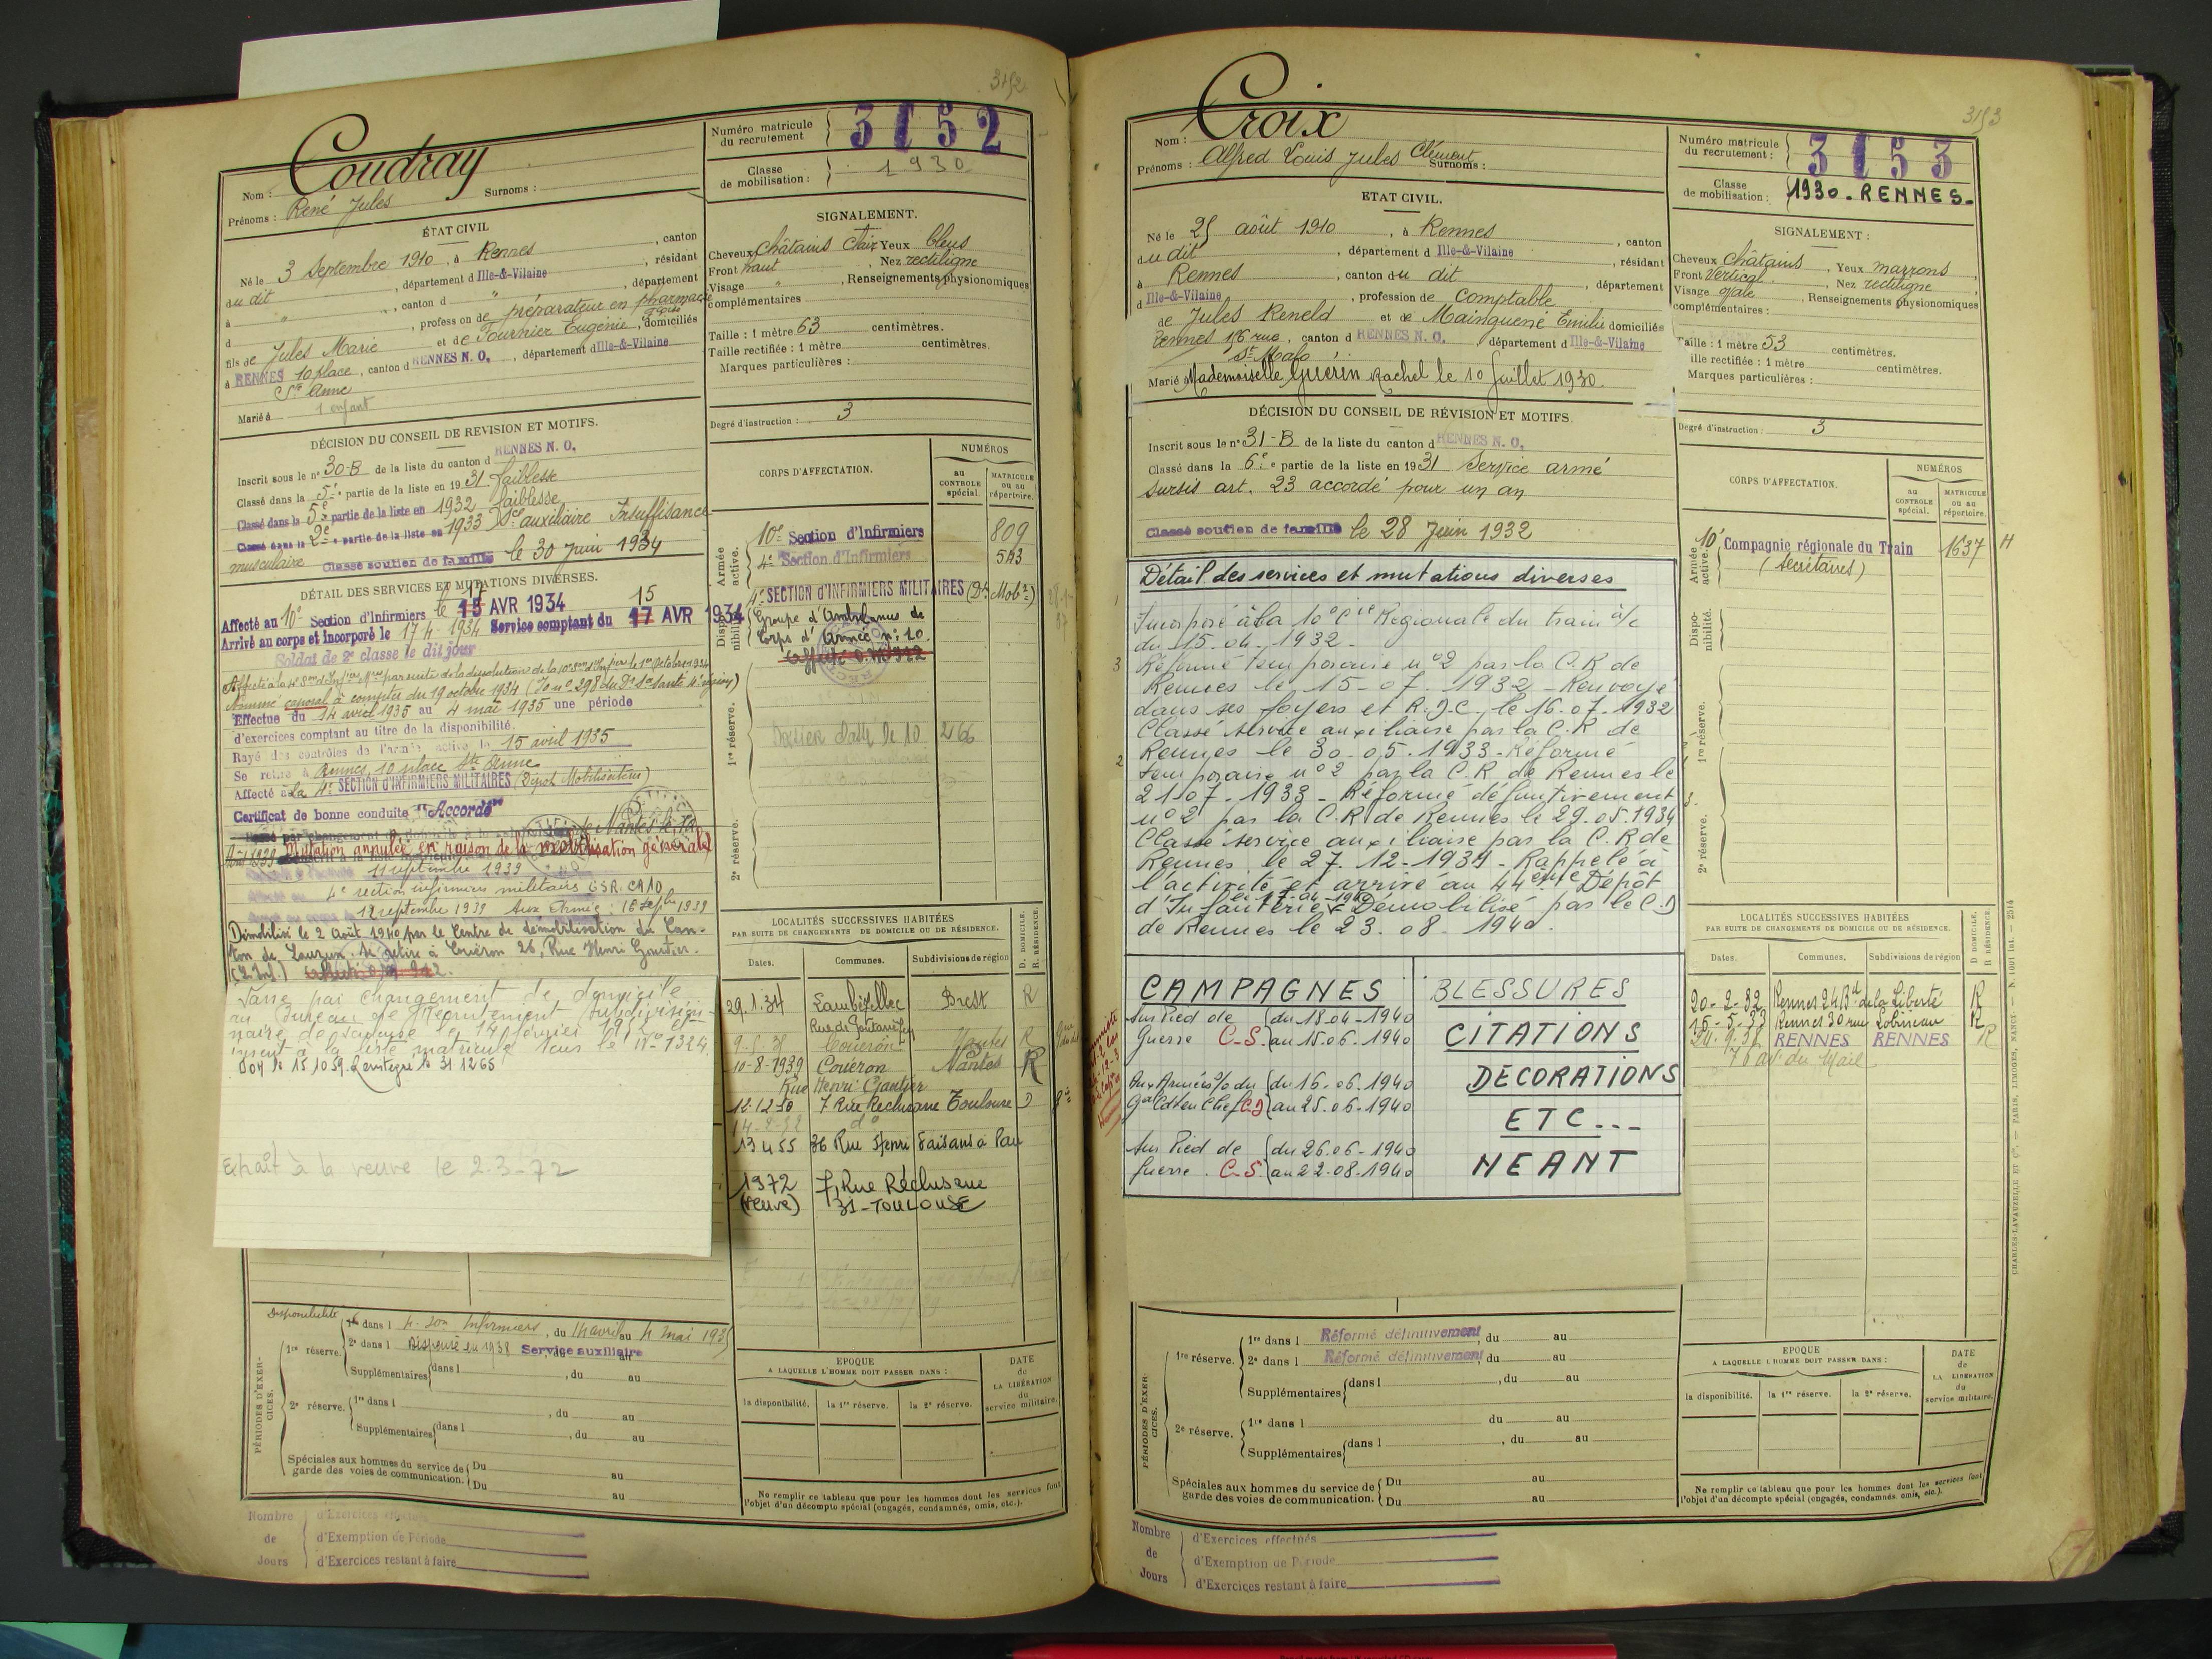 3152
Coudray
Nom :
Prénoms : René Jules
Surnoms :
Numéro matricule du recrutement : 3152
Classe de mobilisation : 1930
ÉTAT CIVIL
Né le 3 Septembre 1910, à Rennes, canton
du dit, département d Ille-&-Vilaine, résidant
à ", canton d ", département
d, profession de préparateur en pharmacie
fils de Jules Marie et de Fournier Eugénie, domiciliés
à RENNES 10 place, canton d RENNES N. O., département d Ille-&-Vilaine
Ste Anne
Marié à
1 enfant
SIGNALEMENT.
Cheveux châtains clair Yeux bleus
Front haut, Nez rectiligne
Visage ", Renseignements physionomiques
complémentaires
Taille : 1 mètre 63 centimètres.
Taille rectifiée : 1 mètre centimètres.
Marques particulières :
Degré d'instruction : 3
DÉCISION DU CONSEIL DE REVISION ET MOTIFS.
Inscrit sous le n° 30-B de la liste du canton d RENNES N. O.
Classé dans la 5e partie de la liste en 1931 faiblesse
Classé dans la 5e partie de la liste en 1932 faiblesse
Classé dans la 2e partie de la liste en 1933 Sce auxiliaire Insuffisance
musculaire Classé soutien de famille le 30 juin 1934
DÉTAIL DES SERVICES ET MUTATIONS DIVERSES.
Affecté au 10e Section d'Infirmiers le 15 AVR 1934
17
15
Arrivé au corps et incorporé le 17-4-1934 Service comptant du 17 AVR 1934
Soldat de 2e classe le dit jour
Nommé caporal à compter du 19 octobre 1934
Effectue du 14 avril 1935 au 4 mai 1935 une période
d'exercices comptant au titre de la disponibilité.
Rayé des contrôles de l'armée active le 15 avril 1935
Se retire à Rennes, 10 place Ste Anne
Affecté à la 4e SECTION D'INFIRMIERS MILITAIRES (Dépôt Mobilisateur)
Certificat de bonne conduite "Accordé"
Mutation annulée en raison de la mobilisation générale
11 septembre 1939
4e section infirmiers militaires
12 septembre 1939 Aux Armées : 16 Septbre 1939
Démobilisé le 2 Août 1940 par le Centre de démobilisation du Can-
ton de Lauzun. Se retire à Couëron 26, Rue Henri Gautier.
Passé par changement de domicile
au Bureau de Recrutement Subdivision-
naire de Toulouse le 14 février 1952 et
inscrit à la liste matricule sous le N° 1324.
Extrait à la veuve le 2-3-72
CORPS D'AFFECTATION.
NUMÉROS
au CONTROLE spécial.
MATRICULE ou au répertoire.
Armée active.
10e Section d'Infirmiers 809
4e Section d'Infirmiers 543
4e SECTION D'INFIRMIERS MILITAIRES (Dt Mobr)
Disponibilité.
Groupe d'Ambulances de
Corps d'Armée n° 10.
1re réserve.
266
2e réserve.
LOCALITÉS SUCCESSIVES HABITÉES
PAR SUITE DE CHANGEMENTS DE DOMICILE OU DE RÉSIDENCE.
D. DOMICILE. R. RÉSIDENCE.
Dates. Communes. Subdivisions de région
29.1.34 Lambézellec Brest R
Couëron Nantes R
10-8-1939 Couëron Nantes R
Rue Henri Gautier
12-12-50 7 Rue Réclusane Toulouse D
14-2-52 do
13 4 55 36 Rue Henri Faisans à Pau
1972 7, Rue Réclusane
(veuve) 31-TOULOUSE
PÉRIODES D'EXERCICES.
Disponibilité
1re réserve.
1re dans l 4e Son Infirmiers, du 14 avril au 4 mai 1935
2e dans l Dispensé en 1938 Service auxiliaire
Supplémentaires dans l, du au
2e réserve.
1re dans l, du au
Supplémentaires dans l, du au
Spéciales aux hommes du service de garde des voies de communication.
Du au
Du au
EPOQUE
A LAQUELLE L'HOMME DOIT PASSER DANS :
la disponibilité. la 1re réserve. la 2e réserve.
DATE de LA LIBÉRATION du service militaire.
Ne remplir ce tableau que pour les hommes dont les services font
l'objet d'un décompte spécial (engagés, condamnés, omis, etc.).
Nombre de Jours
d'Exercices effectués
d'Exemption de Période
d'Exercices restant à faire
3153
Croix
Nom :
Prénoms : Alfred Louis Jules Clément
Surnoms :
Numéro matricule du recrutement : 3153
Classe de mobilisation : 1930 - RENNES -
ETAT CIVIL.
Né le 25 août 1910, à Rennes, canton
du dit, département d Ille-&-Vilaine, résidant
à Rennes, canton du dit, département
d Ille-&-Vilaine, profession de Comptable
de Jules Reneld et de Mainguené Emilie domiciliés
Rennes 156 rue, canton d RENNES N. O., département d Ille-&-Vilaine
St Malo
Marié à Mademoiselle Guérin Rachel le 10 Juillet 1930.
SIGNALEMENT :
Cheveux châtains, Yeux marrons
Front Vertical, Nez rectiligne
Visage ovale, Renseignements physionomiques
complémentaires :
Taille : 1 mètre 53 centimètres.
ille rectifiée : 1 mètre centimètres.
Marques particulières :
Degré d'instruction : 3
DÉCISION DU CONSEIL DE RÉVISION ET MOTIFS.
Inscrit sous le n° 31-B de la liste du canton d RENNES N. O.
Classé dans la 6e partie de la liste en 1931 Service armé
sursis art. 23 accordé pour un an
Classé soutien de famille le 28 Juin 1932
Détail des services et mutations diverses
Incorporé à la 10e Cie Régionale du train à/c
du 15.04.1932.
Réformé temporaire n°2 par la C.R de
Rennes le 15-07.1932 - Renvoyé
dans ses foyers et R.D.C. le 16.07.1932
Classé service auxiliaire par la C.R de
Rennes le 30.05.1933 - Réformé
temporaire n°2 par la C.R de Rennes le
21.07.1933 - Réformé définitivement
n°2 par la C.R de Rennes le 29.05.1934
Classé service auxiliaire par la C.R de
Rennes le 27.12-1939 - Rappelé à
l'activité et arrivé au 44ème Dépôt
d'Infanterie le 17-04-1940 Démobilisé par le C.D
de Rennes le 23.08.1940.
CAMPAGNES
Sur Pied de Guerre C-S. du 18.04-1940 au 15.06-1940
Aux Armées s/o du Gal Cdt en Chef C-D du 16.06.1940 au 25.06-1940
Sur Pied de guerre. C-S. du 26.06-1940 au 22.08-1940
BLESSURES
CITATIONS
DECORATIONS
ETC...
NEANT
CORPS D'AFFECTATION.
NUMÉROS
au CONTROLE spécial.
MATRICULE ou au répertoire.
Armée active.
10e Compagnie régionale du Train 1637 H
(secrétaires)
Disponibilité.
1re réserve.
2e réserve.
LOCALITÉS SUCCESSIVES HABITÉES
PAR SUITE DE CHANGEMENTS DE DOMICILE OU DE RÉSIDENCE.
D. DOMICILE. R. RÉSIDENCE.
Dates. Communes. Subdivisions de région
20-2-32 Rennes 24 Bd de la Liberté R
15-5-33 Rennes 30 rue Lobineau R
24.9.37 RENNES RENNES R
76 av. du Mail
PÉRIODES D'EXERCICES.
1re réserve.
1re dans l Réformé définitivement, du au
2e dans l Réformé définitivement, du au
Supplémentaires dans l, du au
2e réserve.
1re dans l du au
Supplémentaires dans l, du au
Spéciales aux hommes du service de garde des voies de communication.
Du au
Du au
EPOQUE
A LAQUELLE L'HOMME DOIT PASSER DANS :
la disponibilité. la 1re réserve. la 2e réserve.
DATE de LA LIBÉRATION du service militaire.
Ne remplir ce tableau que pour les hommes dont les services font
l'objet d'un décompte spécial (engagés, condamnés, omis, etc.).
Nombre de Jours
d'Exercices effectués
d'Exemption de Période
d'Exercices restant à faire
CHARLES-LAVAUZELLE ET Cie. — PARIS, LIMOGES, NANCY — N. 1001 int. — 2514